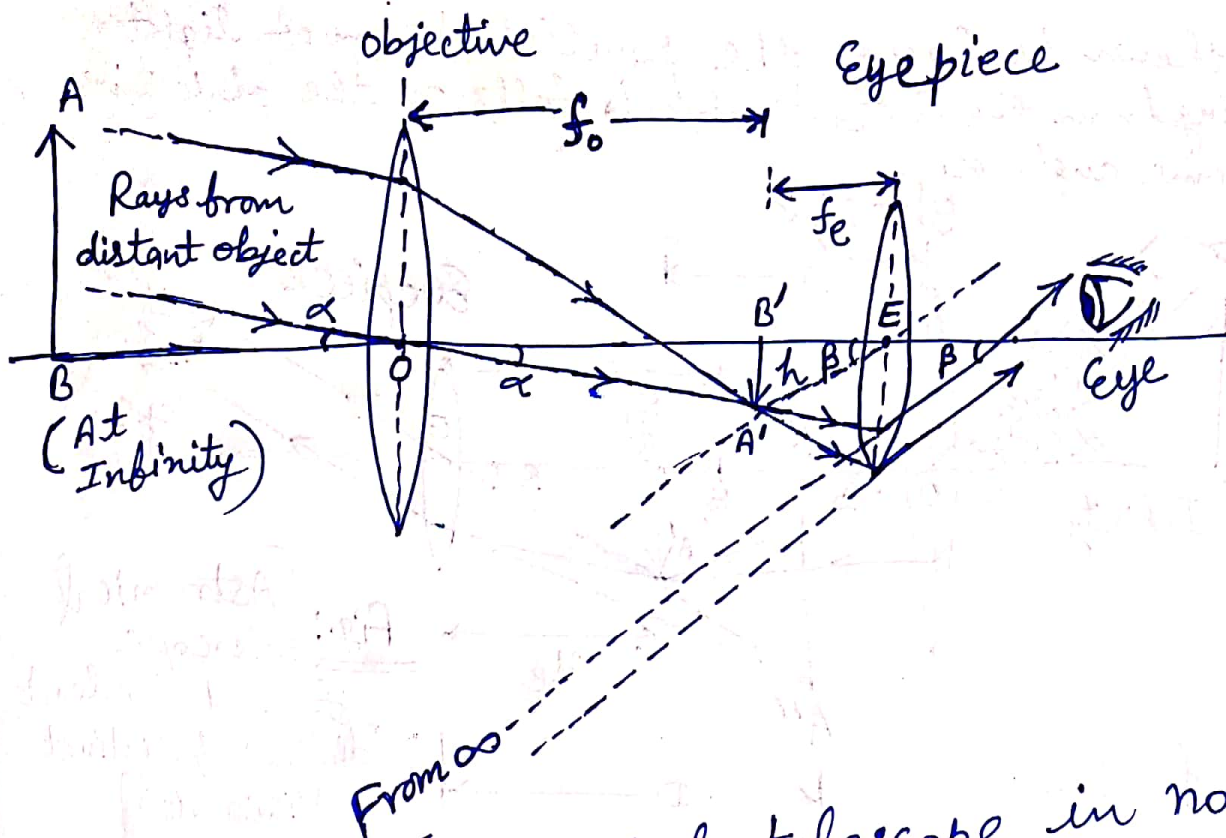 objective
Eyepiece
A
f₀
Rays from
distant object
fe
α
B'
E
B
O
α
h
β
β
Eye
(At
Infinity)
A'
From ∞
telescope in no